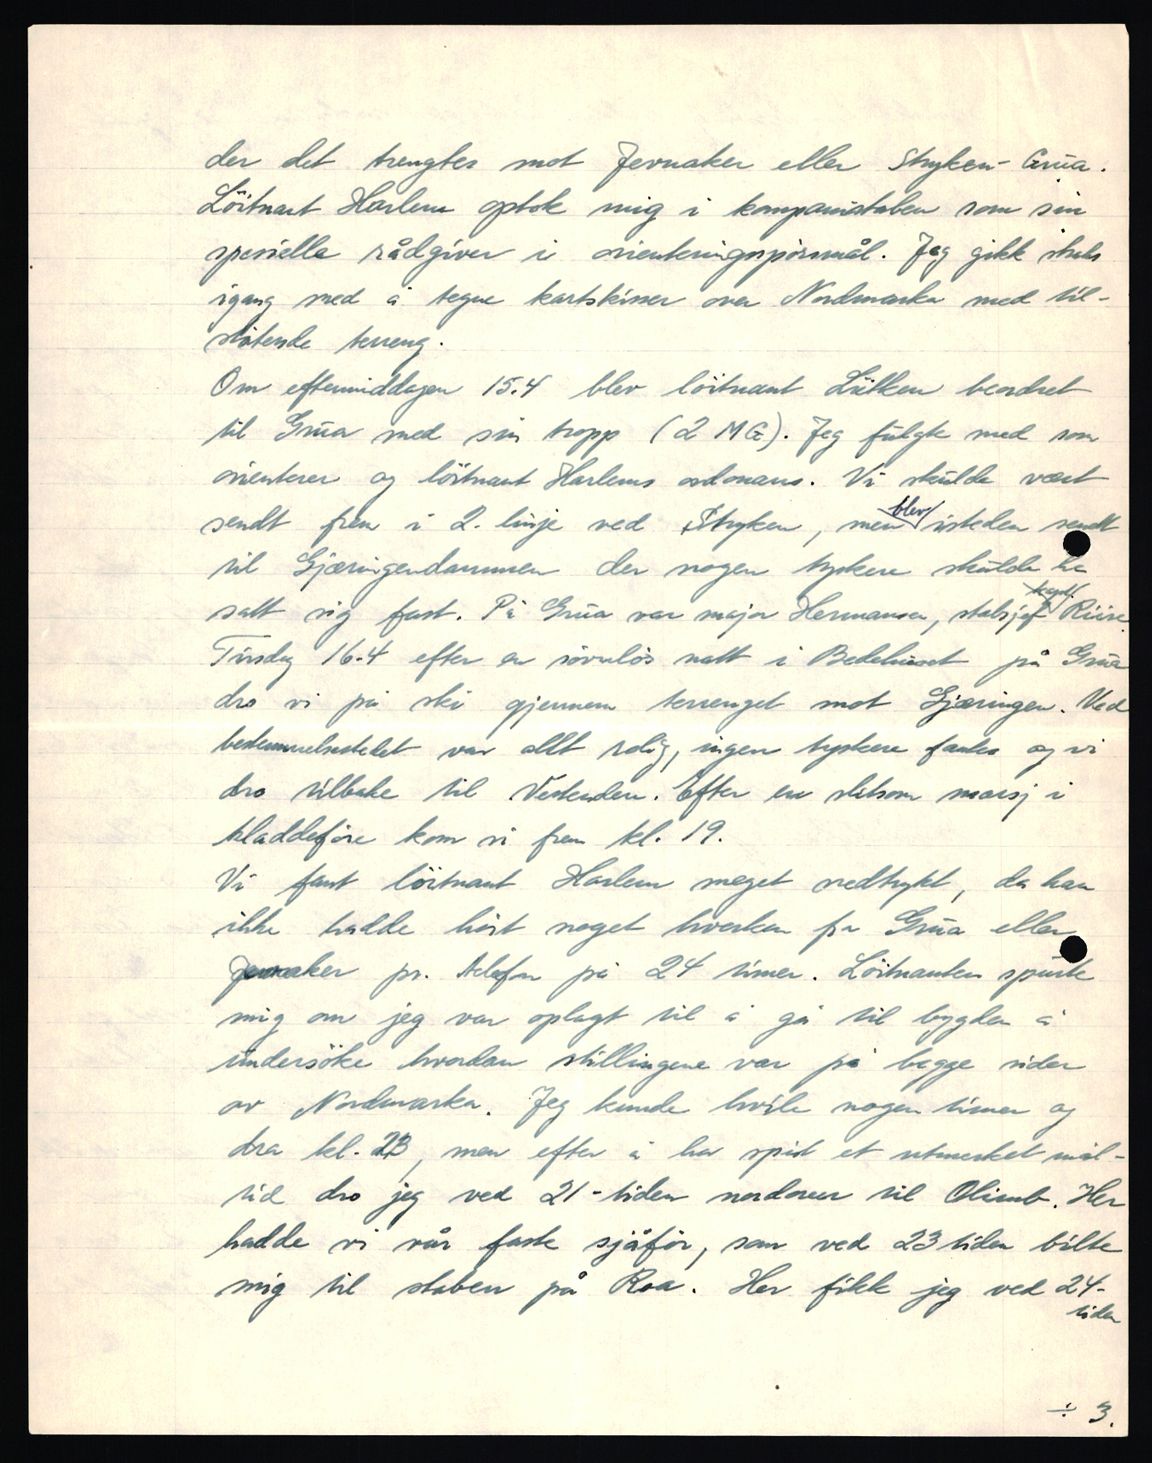 der det trengtes mot Jevnaker eller Stryken - Grua.
Löitnant Harlem optok mig i kompanistaben som sin
spesielle rådgiver i orienteringsspörsmål. Jeg gikk straks
igang med å tegne kartskisser over Nordmarka med til-
støtende terreng.
Om eftermiddagen 15.4 blev löitnant Lütken beordret
til Grua med sin tropp (2 MG). Jeg fulgte med som
orienterer og löitnant Harlems ordonans. Vi skulde vært
sendt frem i 2. linje ved Stryken, men blev isteden sendt
til Gjæringendammen der nogen tyskere skulde ha
satt sig fast. På Grua var major Hermansen, stabsjef kapt. Riise.
Tirsdag 16.4 efter en sövnlös natt i Bedehuset på Grua
dro vi på ski gjennem terrenget mot Gjæringen. Ved
bestemmelsestedet var allt rolig, ingen tyskere fantes og vi
dro tilbake til Vestenden. Efter en slitsom marsj i
kladdeföre kom vi frem kl. 19.
Vi fant löitnant Harlem meget nedtrykt, da han
ikke hadde hört noget hverken fra Grua eller
Jevnaker pr. telefon på 24 timer. Löitnanten spurte
mig om jeg var oplagt til å gå til bygden å
undersöke hvordan stillingene var på begge sider
av Nordmarka. Jeg kunde hvile nogen timer og
dra kl. 23, men efter å ha spist et utmerket mål-
tid dro jeg ved 21-tiden nordover til Olimb. Her
hadde vi vår faste sjåför, som ved 23 tiden bilte
mig til staben på Roa. Her fikk jeg ved 24-
tiden
÷ 3.